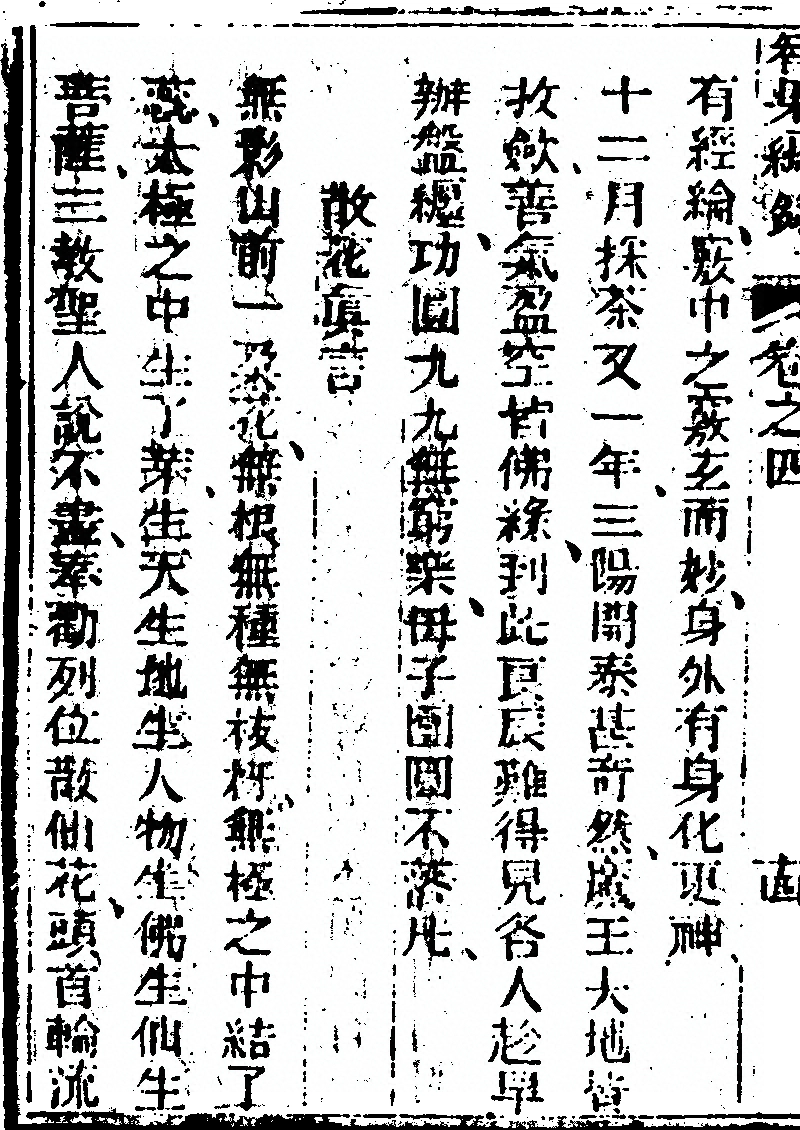 卷之四
有經綸竅中之竅玄而妙身外有身化更神
十二月採茶又一年三陽開泰甚奇然魔王大地皆
收歛善氣盈空皆佛緣到此良辰難得見各人趁早
辦盤纏功圓九九無窮樂母子團圓不落凡
散花真言
無影山前一朵花無根無種無枝枒無極之中結了
蕊太極之中生了葉生天生地生人物生佛生仙生
菩薩三教聖人說不盡奉勸列位散仙花頭首輪流